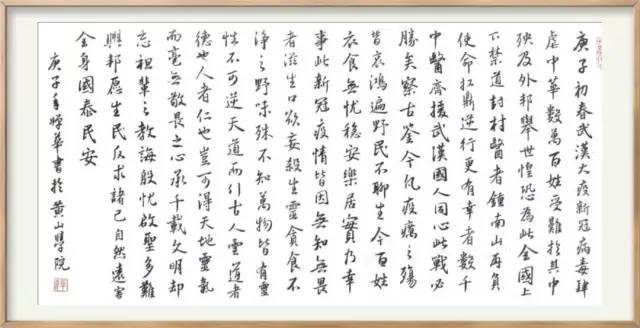 庚子初春武漢大疫新冠病毒肆
虐中華數萬百姓受難於其中
殃及外邦舉世惶恐為此全國上
下禁道封村醫者鍾南山再負
使命扛鼎逆行更有幸者數千
中醫齊援武漢國人同心此戰必
勝矣察古鑒今凡疫癘之殤
皆哀鴻遍野民不聊生今百姓
衣食無憂穩安樂居實乃幸
事此新冠疫情皆因無知無畏
者滋生口欲妄殺生靈貪食不
淨之野味殊不知萬物皆有靈
性不可逆天道而行古人云道者
德也人者仁也豈可得天地靈氣
而毫無敬畏之心承千載文明却
忘祖輩之教誨殷憂啟聖多難
興邦愿生民反求諸己自然遠害
全身國泰民安
庚子年 華書於黃山學院